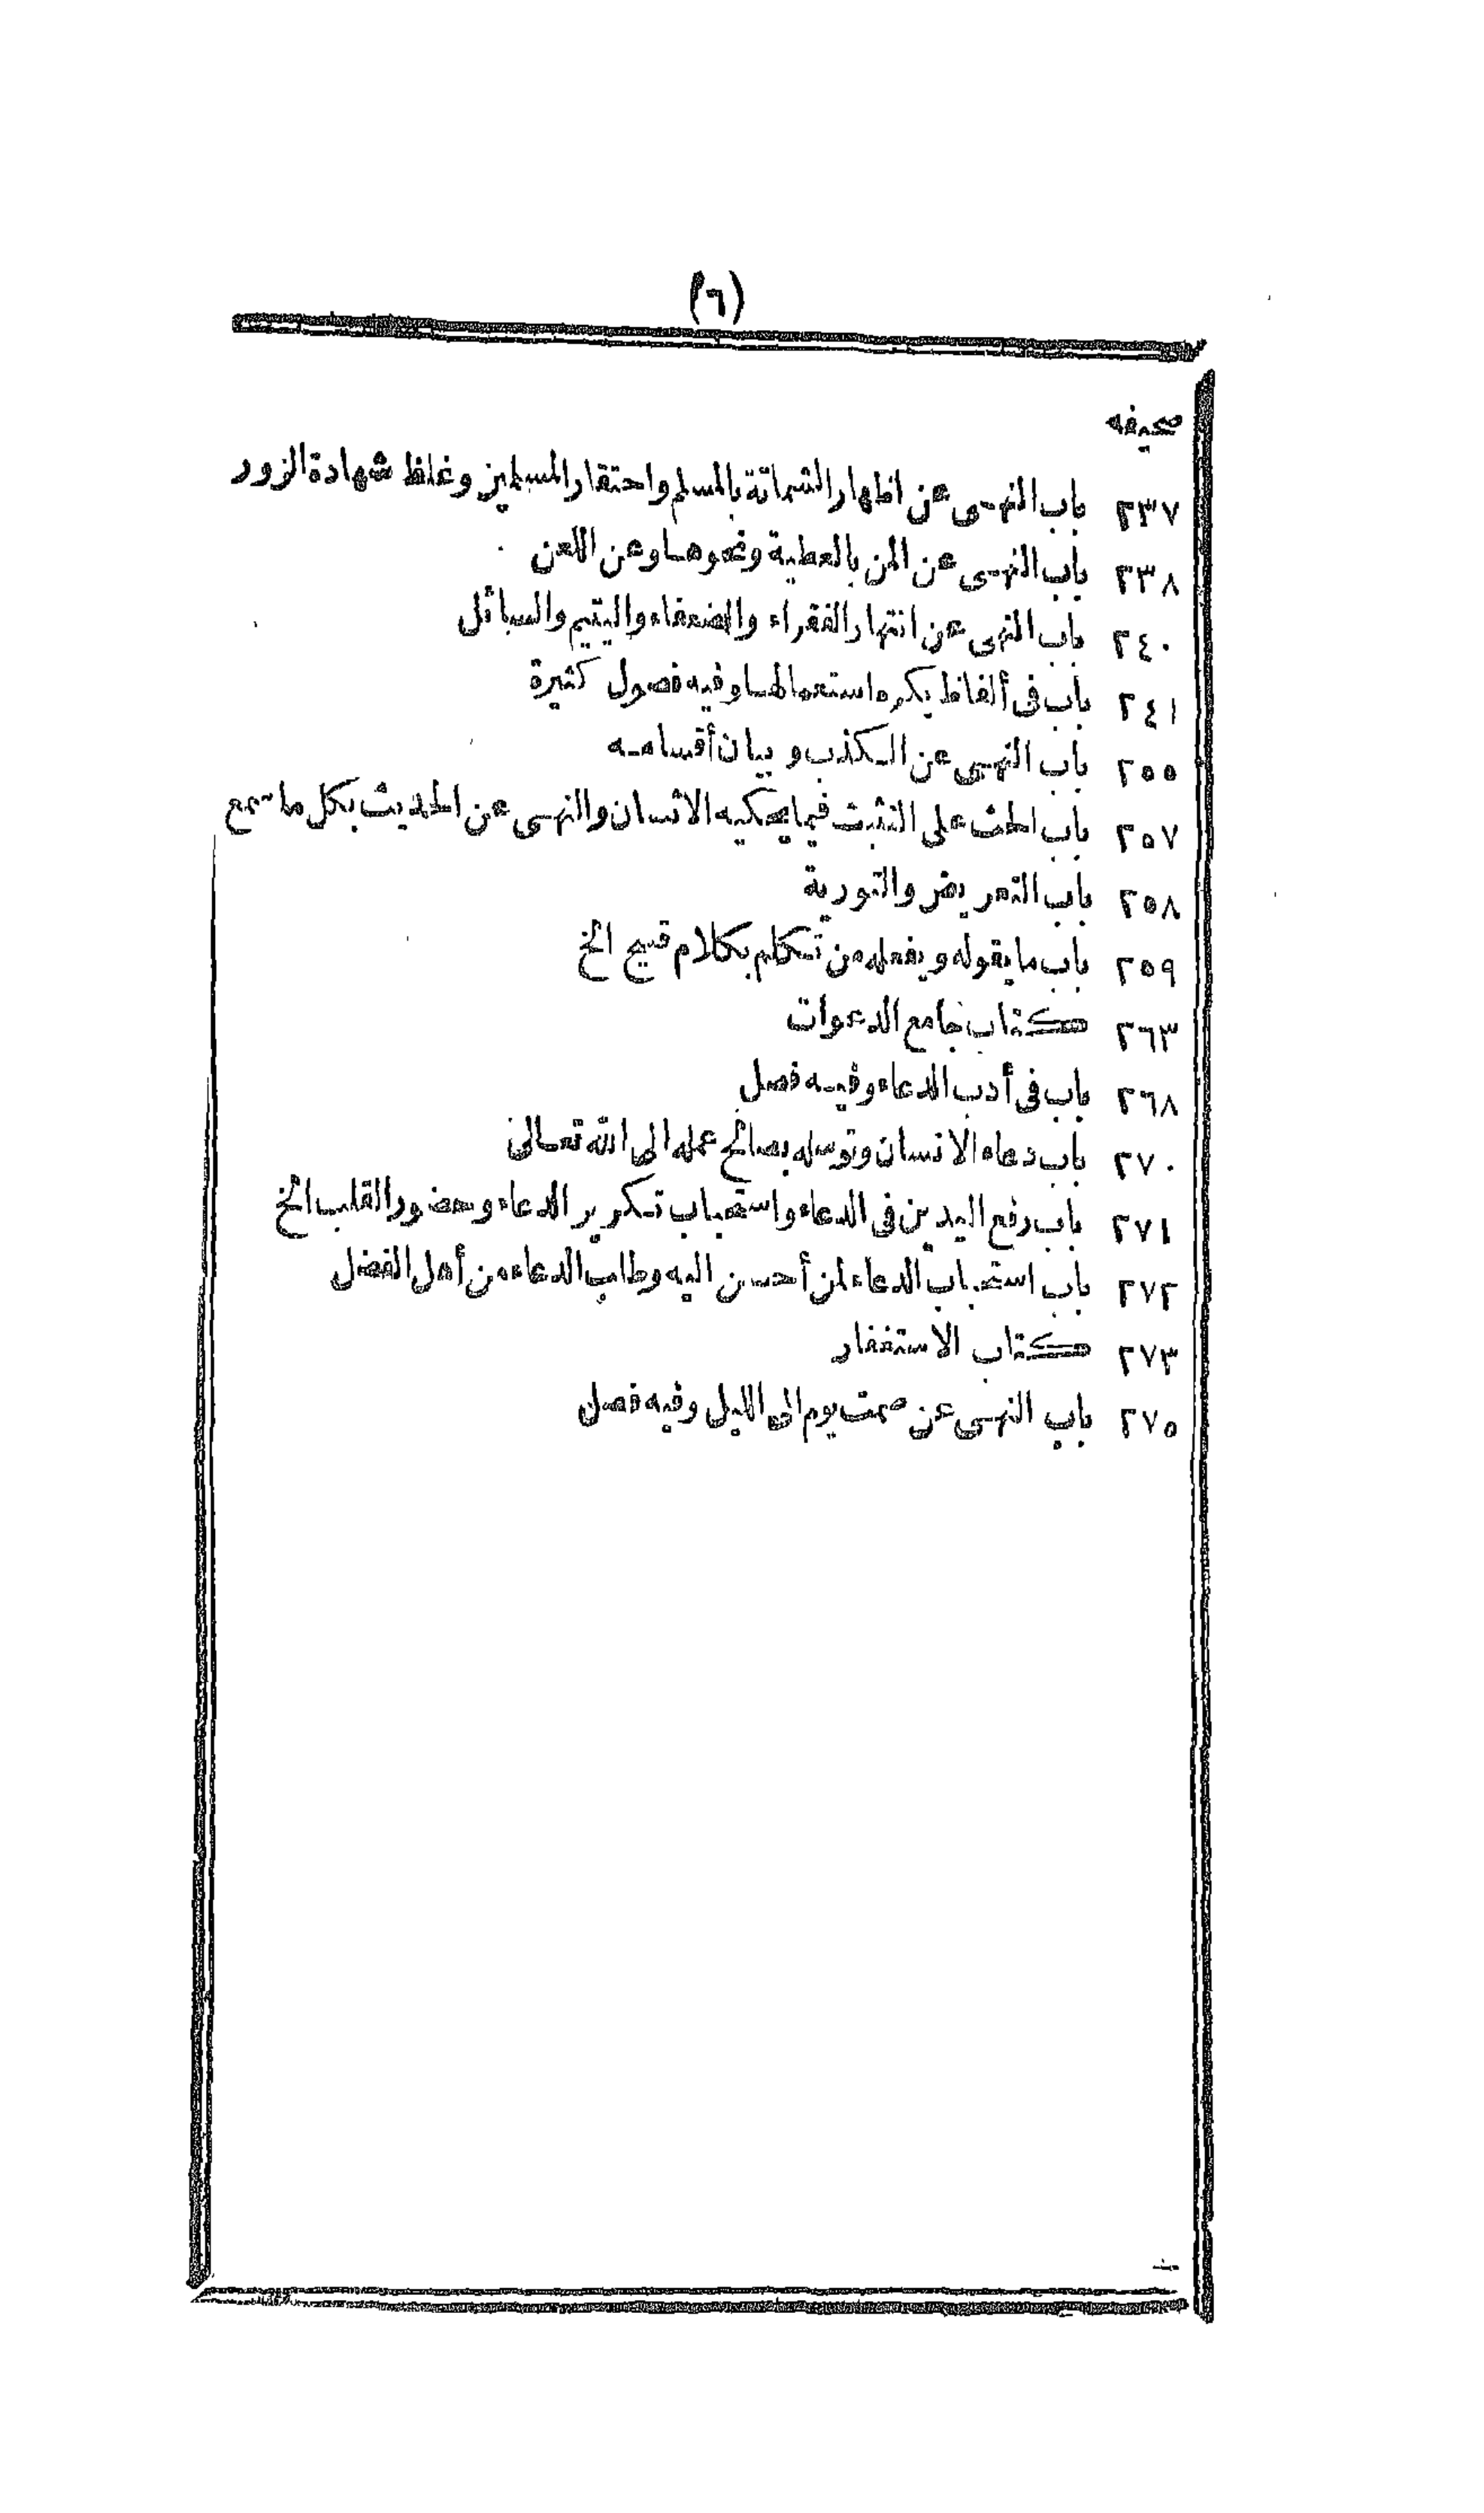 (٦)
صحيفه
٢٣٧ باب النهى عن اظهار الشماتة بالمسلم واحتقار المسلمين وغلظ شهادة الزور
٢٣٨ باب النهى عن المن بالعطية ونحوها وعن اللعن
٢٤٠ باب النهى عن انتهار الفقراء والضعفاء واليتيم والسائل
٢٤١ باب فى ألفاظ يكره استعمالها وفيه فصول كثيرة
٢٥٥ باب النهى عن الكذب وبيان أقسامه
٢٥٧ باب الحث على التثبت فيما يحكيه الانسان والنهى عن الحديث بكل ما سمع
٢٥٨ باب التعريض والتورية
٢٥٩ باب ما يقوله ويفعله من تكلم بكلام قبيح الخ
٢٦٣ كتاب جامع الدعوات
٢٦٨ باب فى أدب الدعاء وفيه فصل
٢٧٠ باب دعاء الانسان وتوسله بصالح عمله الى الله تعالى
٢٧١ باب رفع اليدين فى الدعاء واستحباب تكرير الدعاء وحضور القلب الخ
٢٧٢ باب استحباب الدعاء لمن أحسن اليه وطلب الدعاء من أهل الفضل
٢٧٣ كتاب الاستغفار
٢٧٥ باب النهى عن صمت يوم الى الليل وفيه فصل